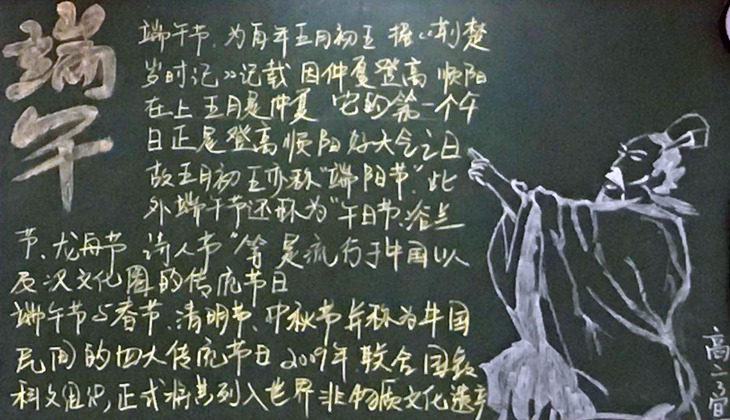 端午
端午节,为每年五月初五 据《荆楚
岁时记》记载 因仲夏登高 顺阳
在上 五月是仲夏 它的第一个午
日正是登高顺阳好天气之日
故五月初五亦称"端阳节".此
外端午节还称为"午日节、浴兰
节、龙舟节 诗人节"等 是流行于中国以
及汉文化圈的传统节日
端午节与春节、清明节、中秋节并称为中国
民间的四大传统节日 2009年,联合国教
科文组织,正式将其列入世界非物质文化遗产
高二